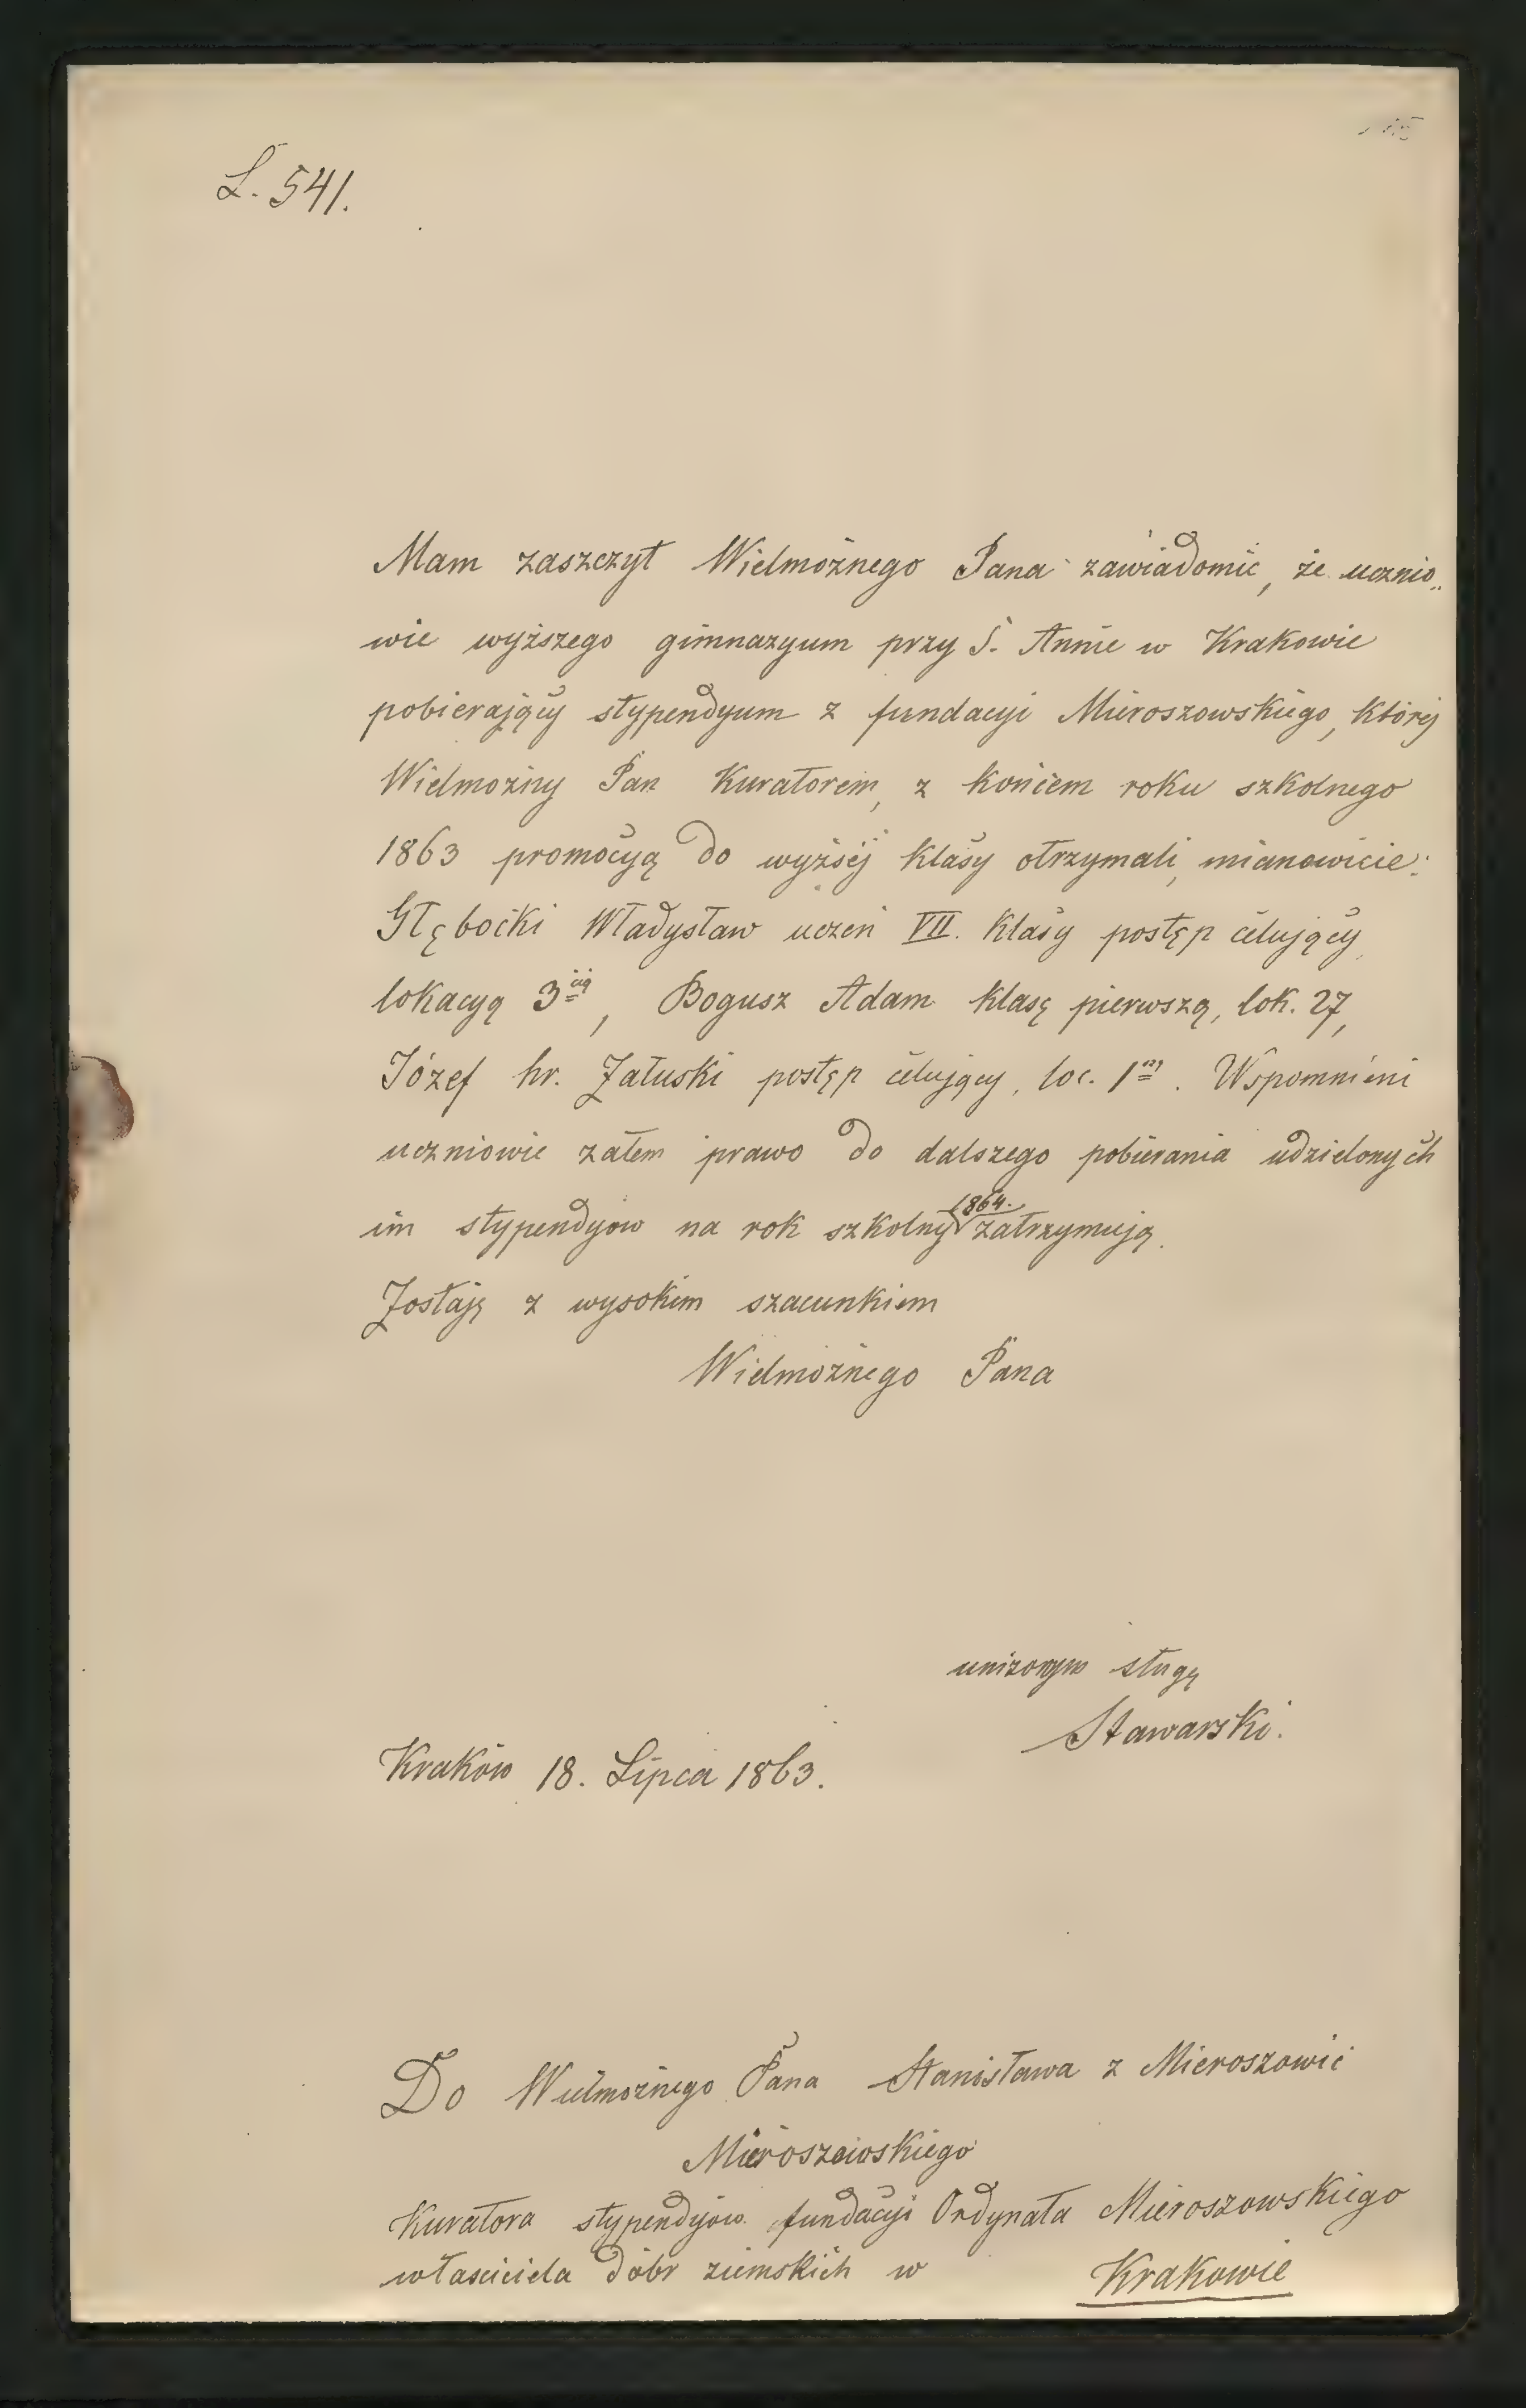 L. 541.
Mam zaszczyt Wielmożnego Pana zawiadomić, że ucznio„
wie wyższego gimnazyum przy S. Annie w Krakowie
pobierający stypendyum z fundacyi Mieroszowskiego, której
Wielmożny Pan Kuratorem, z końcem roku szkolnego
1863 promocyą do wyższéj klasy otrzymali, mianowicie:
Głębocki Władysław uczeń VII. klasy postęp celujący,
lokacyą 3cią, Bogusz Adam klasę pierwszą, lok. 27,
Józef hr. Załuski postęp celujący, loc. 1szą. Wspomnieni
uczniowie zatem prawo do dalszego pobierania udzielonych
im stypendyow na rok szkolny 1864. zatrzymują.
Zostaję z wysokim szacunkiem
Wielmożnego Pana
uniżonym sługą
Stawarski.
Kraków 18. Lipca 1863.
Do Wielmożnego Pana Stanisława z Mieroszowic
Mieroszowskiego
Kuratora stypendyów fundacyi Ordynata Mieroszowskiego
właściciela dóbr ziemskich w Krakowie